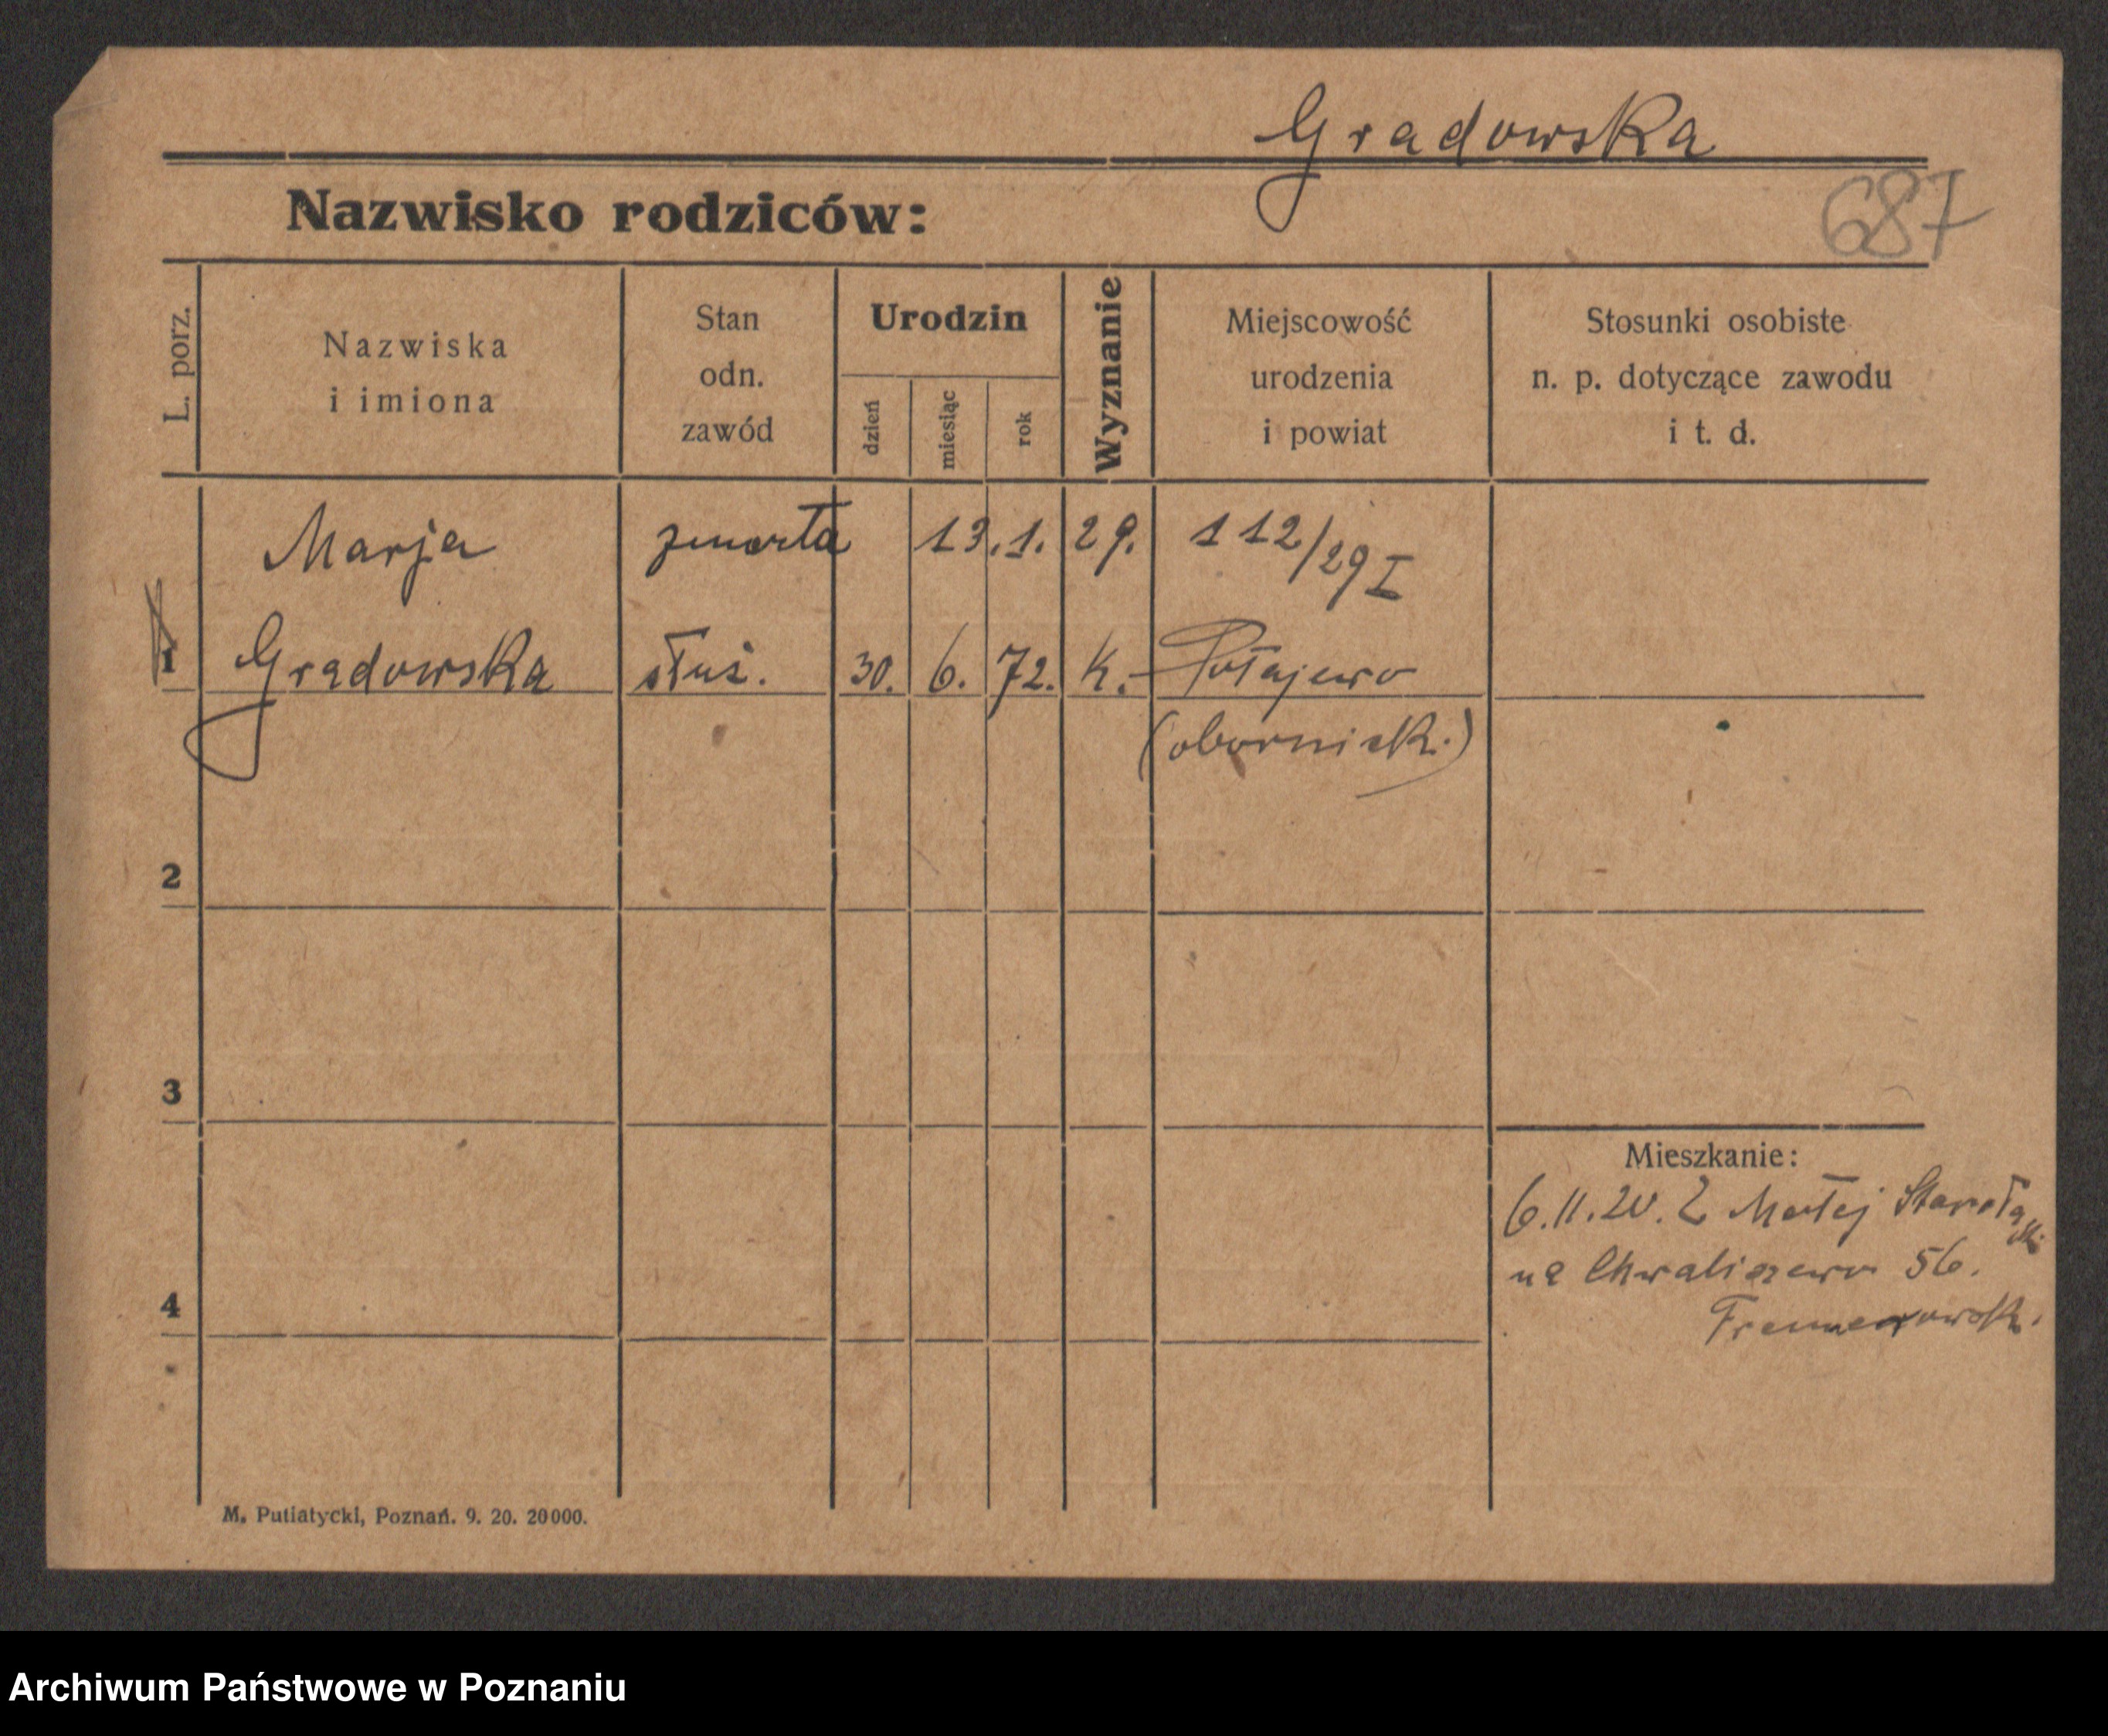 Gradowska
Nazwisko rodziców:
687
L. porz.
Nazwiska
i imiona
Stan
odn.
zawód
Urodzin
dzień
miesiąc
rok
Wyznanie
Miejscowość
urodzenia
i powiat
Stosunki osobiste
n. p. dotyczące zawodu
i t. d.
Marja zmarła 13.1.29. 112/29 I
1 Gradowska służ. 30. 6. 72. k. Połajewo
(obornick.)
2
3
Mieszkanie:
6.11.20. Z Małej
na Chwaliszewo 56.
4
M. Putiatycki, Poznań. 9. 20. 20000.
Archiwum Państwowe w Poznaniu